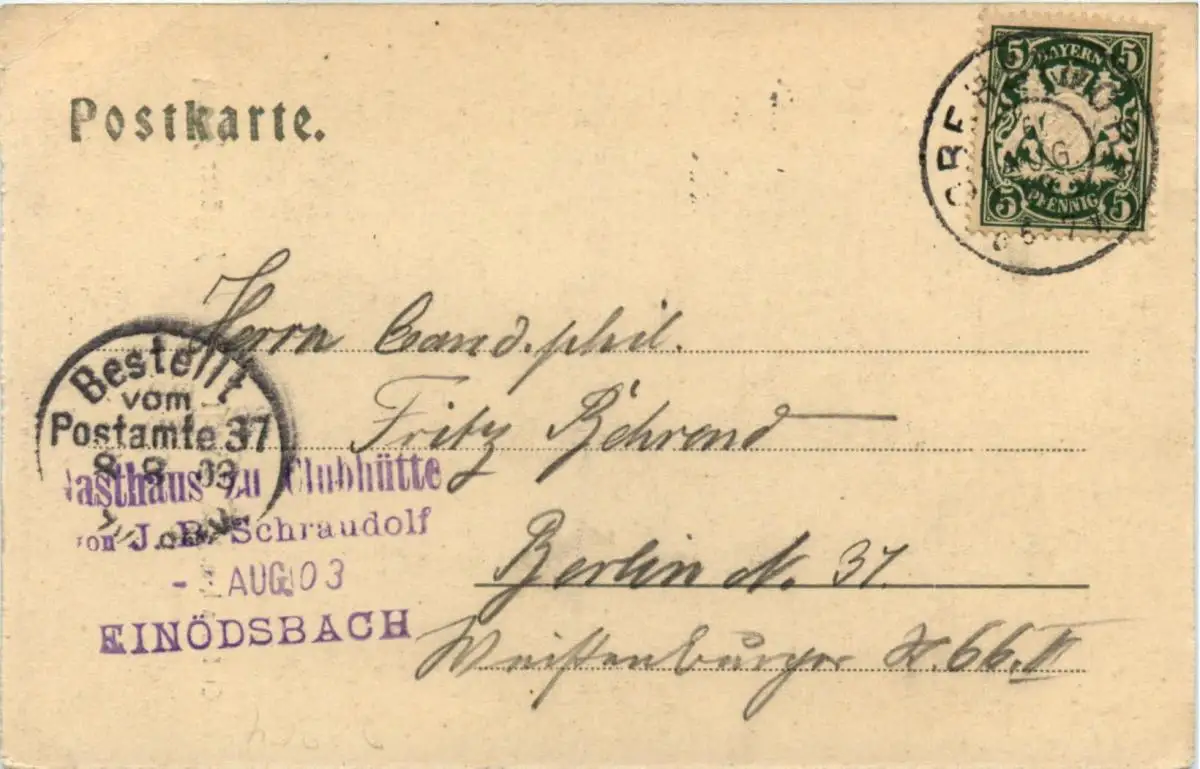 Postkarte.
5 BAYERN 5
5 PFENNIG 5
AUG
Herrn Cand. phil.
Fritz Behrend
Berlin N. 37.
Weißenburger 66. II
Bestellt
vom
Postamte 37
8 8 03
Gasthaus zu Clubhütte
von J. B. Schraudolf
AUG. 03
EINÖDSBACH